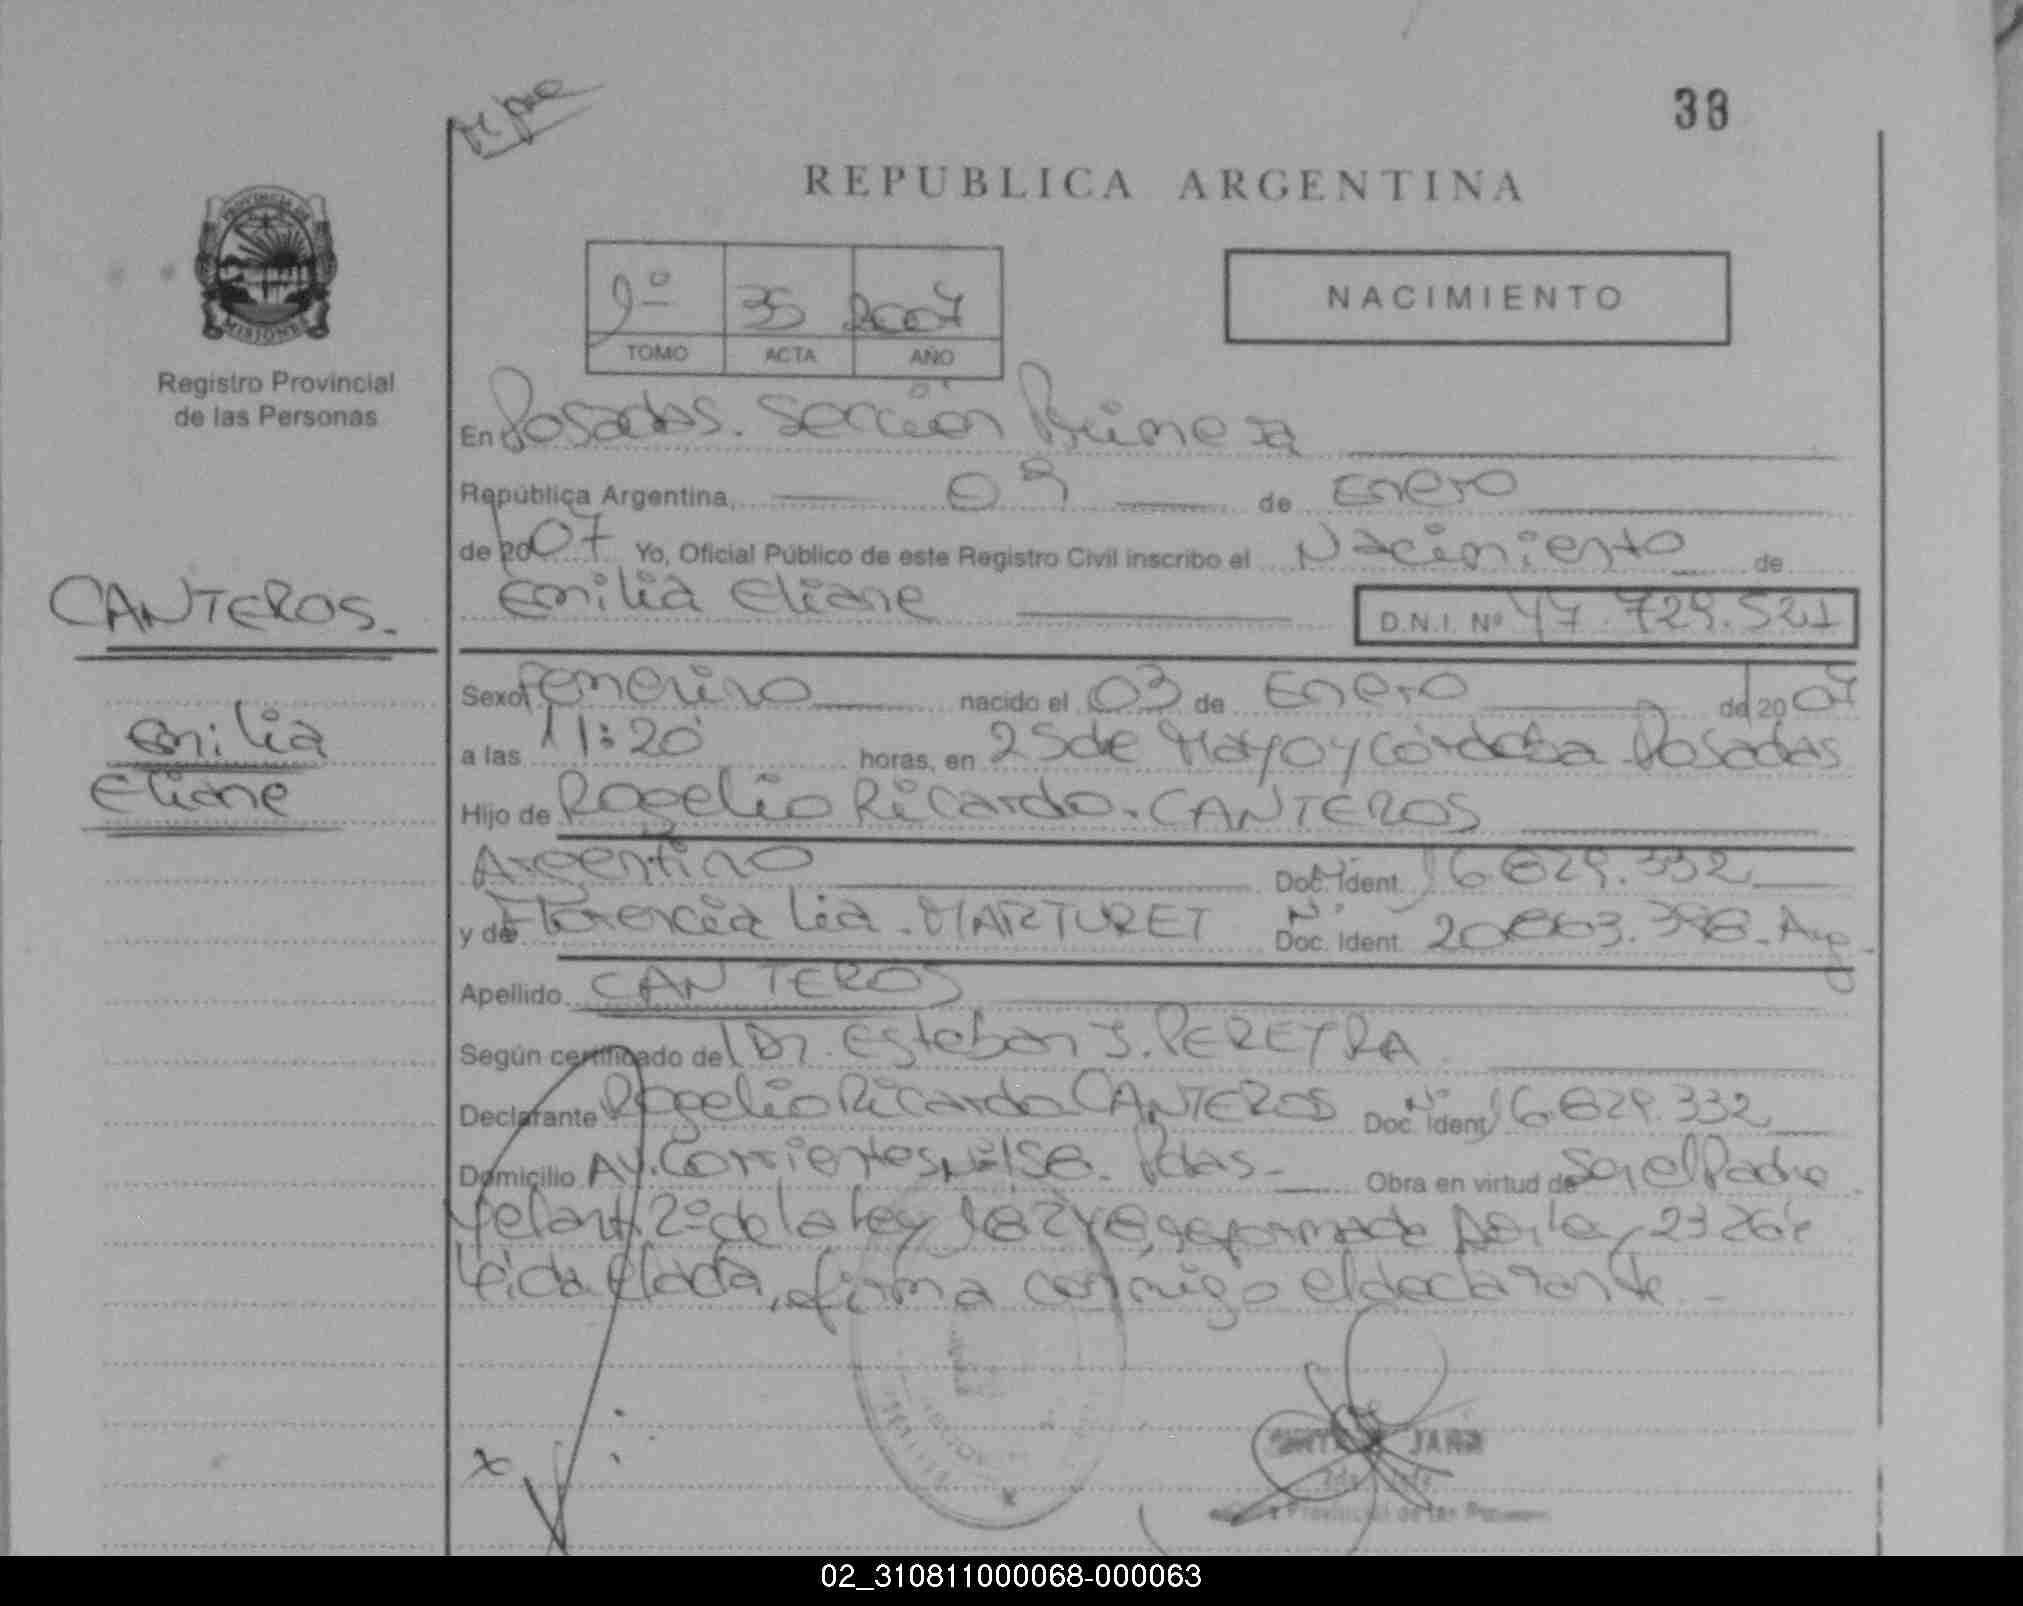 38
REPUBLICA ARGENTINA
PROVINCIA DE
MISIONES
Registro Provincial
de las Personas
1º 35 2007
TOMO ACTA AÑO
NACIMIENTO
En Posadas. Sección Primera
República Argentina, 09 de Enero
de 2007 Yo, Oficial Público de este Registro Civil inscribo el Nacimiento de
Emilia Eliane D.N.I. Nº 47.729.521
CANTEROS.
Emilia
Eliane
Sexo Femenino nacido el 03 de Enero de 2007
a las 11:20 horas, en 25 de Mayo y Córdoba Posadas
Hijo de Rogelio Ricardo. CANTEROS
Argentino Doc. Ident. Nº 16.829.332
y de Florencia Lia. MARTURET Doc. Ident. Nº 20.863.398. Arg.
Apellido CANTEROS
Según certificado del Dr. Esteban J. PEREYRA
Declarante Rogelio Ricardo CANTEROS Doc. Ident. Nº 16.829.332
Domicilio Av. Corrientes Nº 158. Pdas- Obra en virtud de Ser el Padre
y el art. 2º de la Ley 18248, reformada por la 23264
Leída el acta, firma conmigo el declarante.-
x
JARA
Provincial de las Personas
02_310811000068-000063